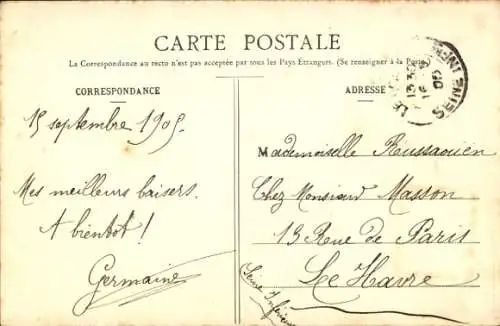 CARTE POSTALE
La Correspondance au recto n'est pas acceptée par tous les Pays Étrangers. (Se renseigner à la Poste)
CORRESPONDANCE
ADRESSE
15 septembre 1905.
Mes meilleurs baisers.
A bientôt!
Germaine
Mademoiselle Roussaouën
Chez Monsieur Masson
13 Rue de Paris
Le Havre
Seine Inférieure
LE
SEINE INF